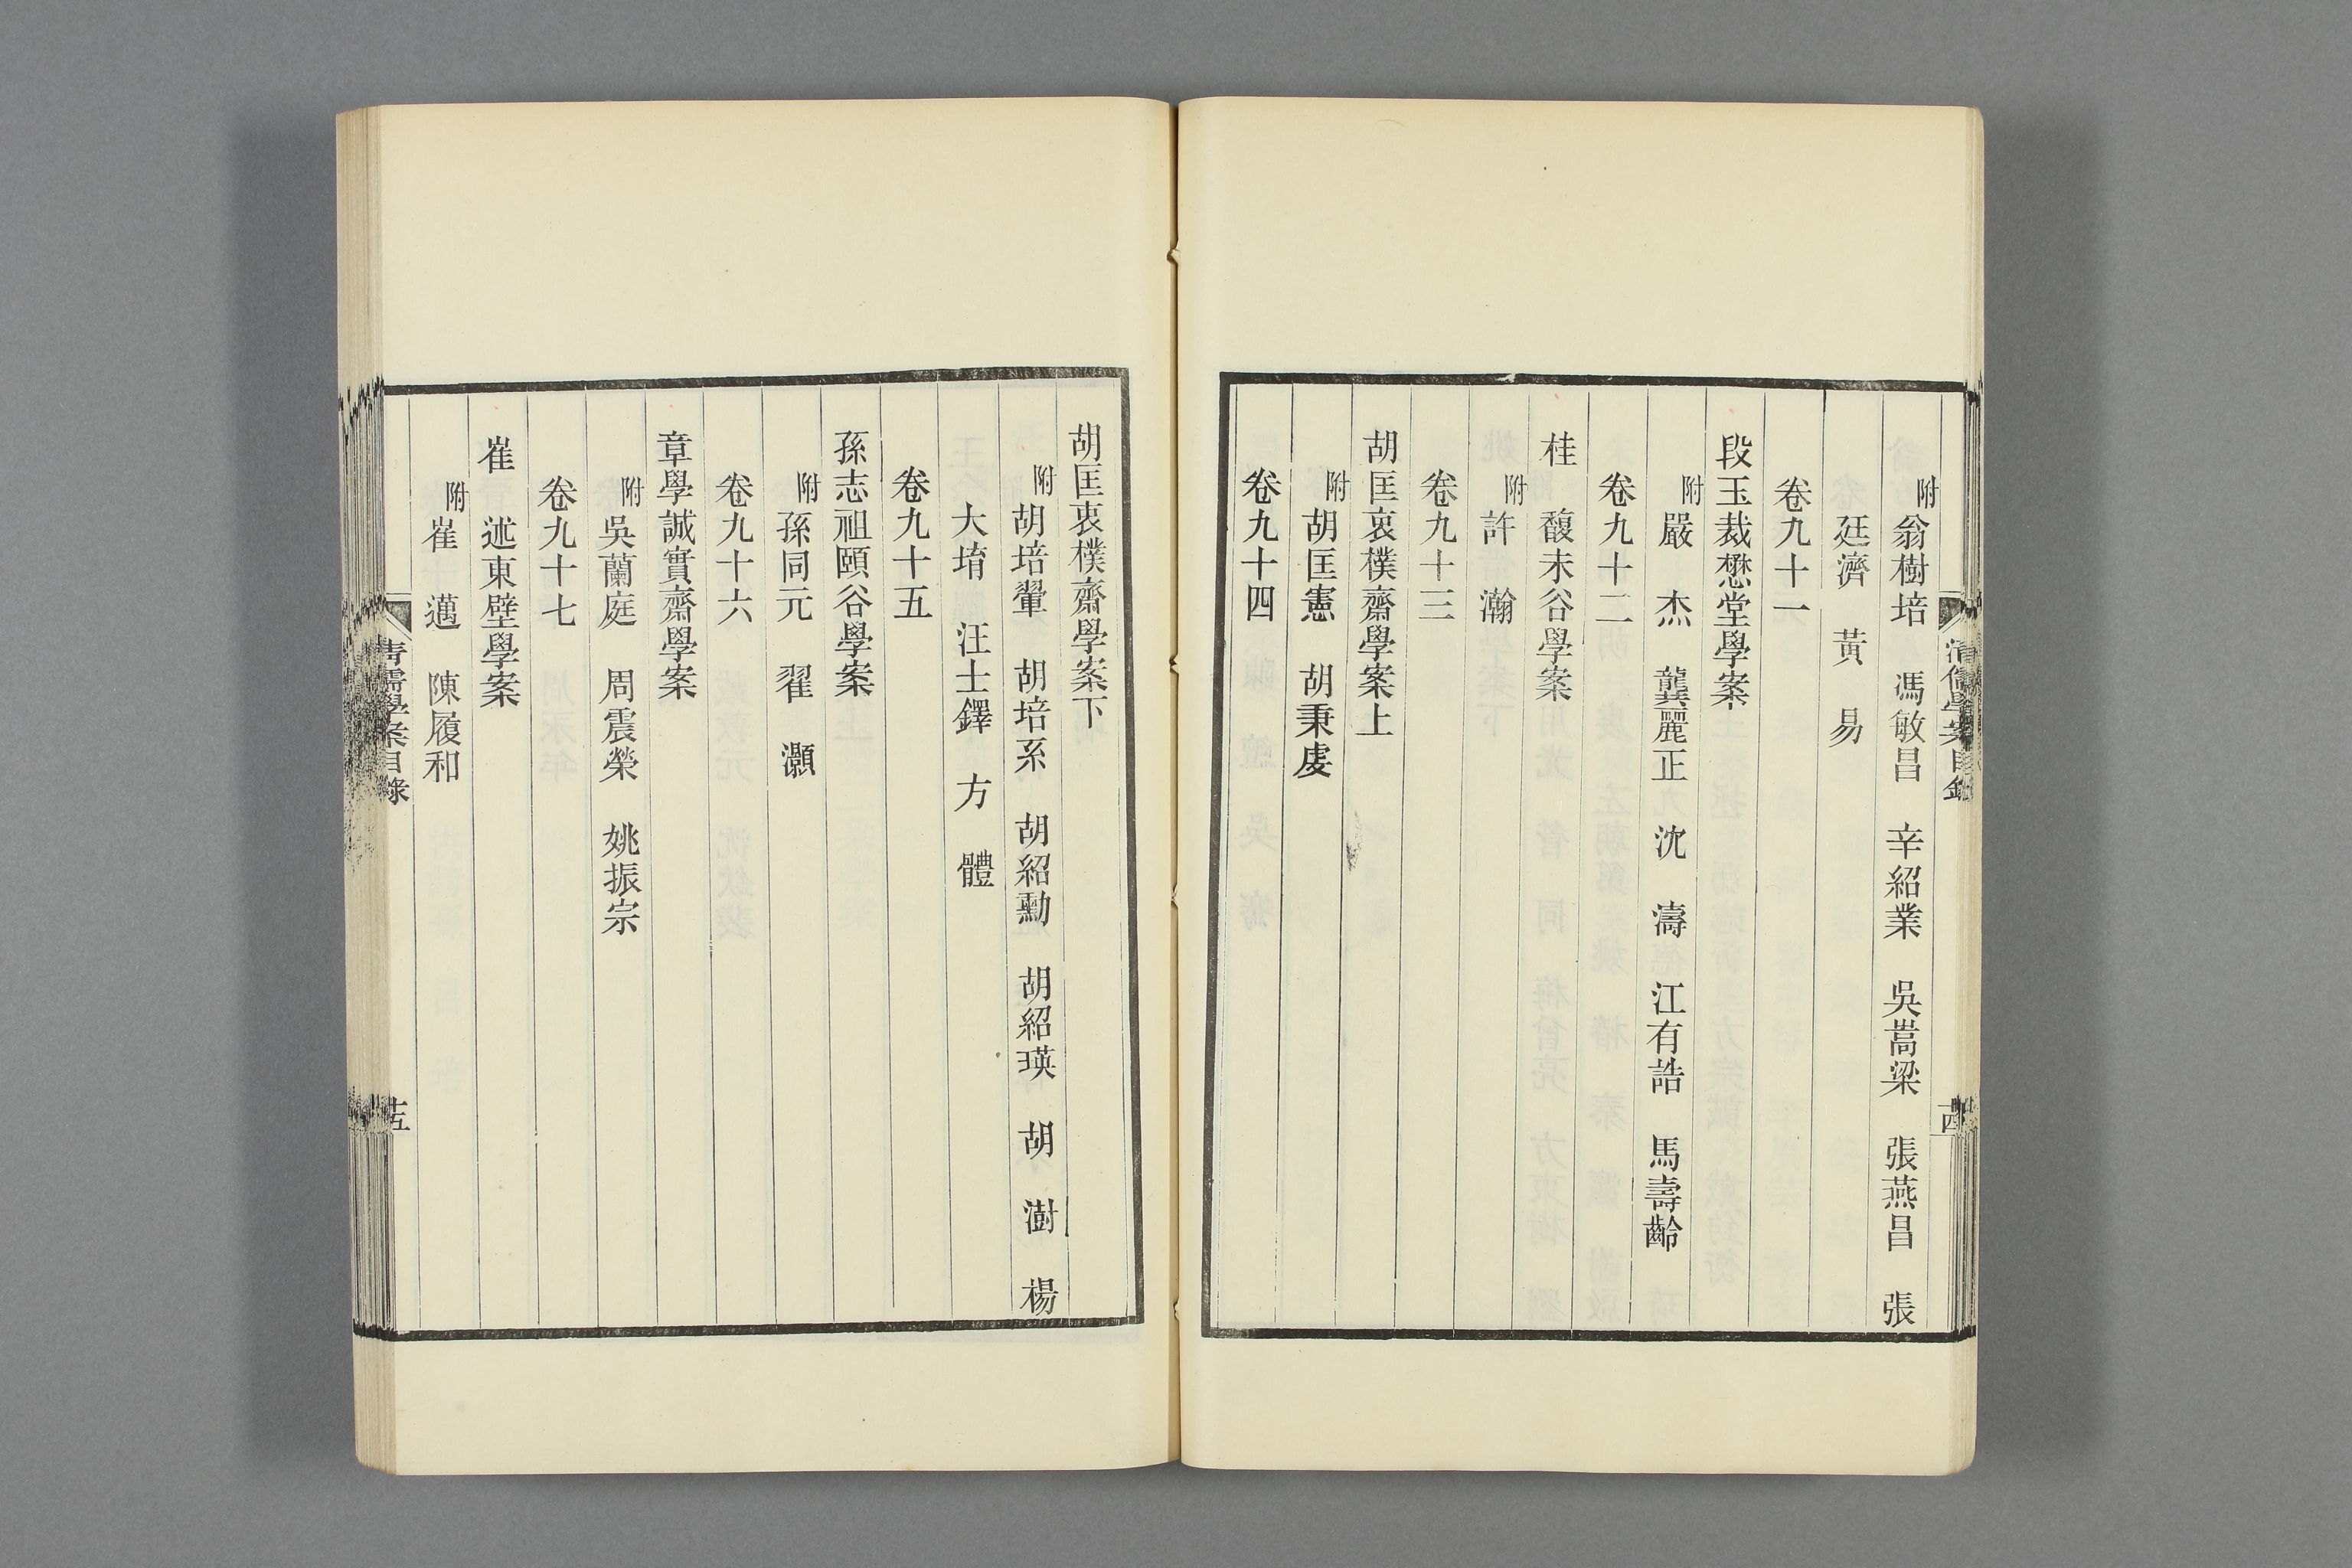 附翁樹培　馮敏昌　辛紹業　吳嵩梁　張燕昌　張
廷濟　黃　易
卷九十一
段玉裁懋堂學案
附嚴　杰　龔麗正　沈　濤　江有誥　馬壽齡
卷九十二
桂　馥未谷學案
附許　瀚
卷九十三
胡匡衷樸齋學案上
附胡匡憲　胡秉虔
卷九十四
清儒學案目錄
十四
胡匡衷樸齋學案下
附胡培翬　胡培系　胡紹勳　胡紹瑛　胡　澍　楊
大堉　汪士鐸　方　體
卷九十五
孫志祖頤谷學案
附孫同元　翟　灝
卷九十六
章學誠實齋學案
附吳蘭庭　周震榮　姚振宗
卷九十七
崔　述東壁學案
附崔　邁　陳履和
清儒學案目錄
十五